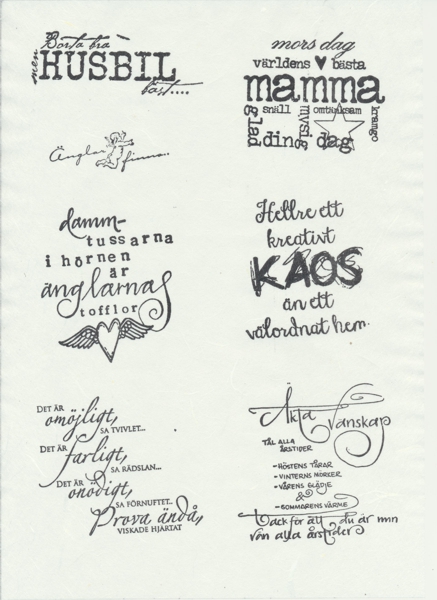 Borta bra
men
HUSBIL
bäst....
mors dag
världens bästa
mamma
snäll omtänksam
glad
mysig
kramgo
din dag
Änglar finns..
damm-
tussarna
i hörnen
är
änglarnas
tofflor
Hellre ett
kreativt
KAOS
än ett
välordnat hem.
DET ÄR
omöjligt,
SA TVIVLET...
DET ÄR
farligt,
SA RÄDSLAN...
DET ÄR
onödigt,
SA FÖRNUFTET...
Prova ändå,
VISKADE HJÄRTAT
Äkta Vänskap
TÅL ALLA
ÅRSTIDER
-HÖSTENS TÅRAR
-VINTERNS MÖRKER
-VÅRENS GLÄDJE
&
-SOMMARENS VÄRME
tack för att du är min
vän alla årstider